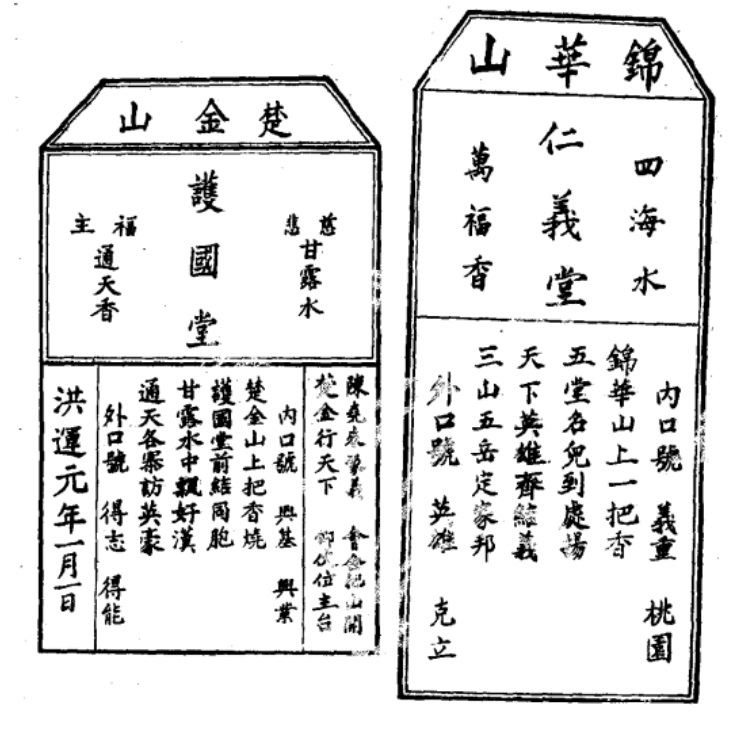 錦華山
四海水
仁義堂
萬福香
內口號 義重 桃園
錦華山上一把香
五堂名兒到處揚
天下英雄齊結義
三山五岳定家邦
外口號 英雄 克立
楚金山
慈悲
甘露水
護國堂
福主
通天香
楚金行天下 位主台
內口號 興基 興業
楚金山上把香燒
護國堂前結同胞
甘露水中飄好漢
通天各寨訪英豪
外口號 得志 得能
洪運元年一月一日